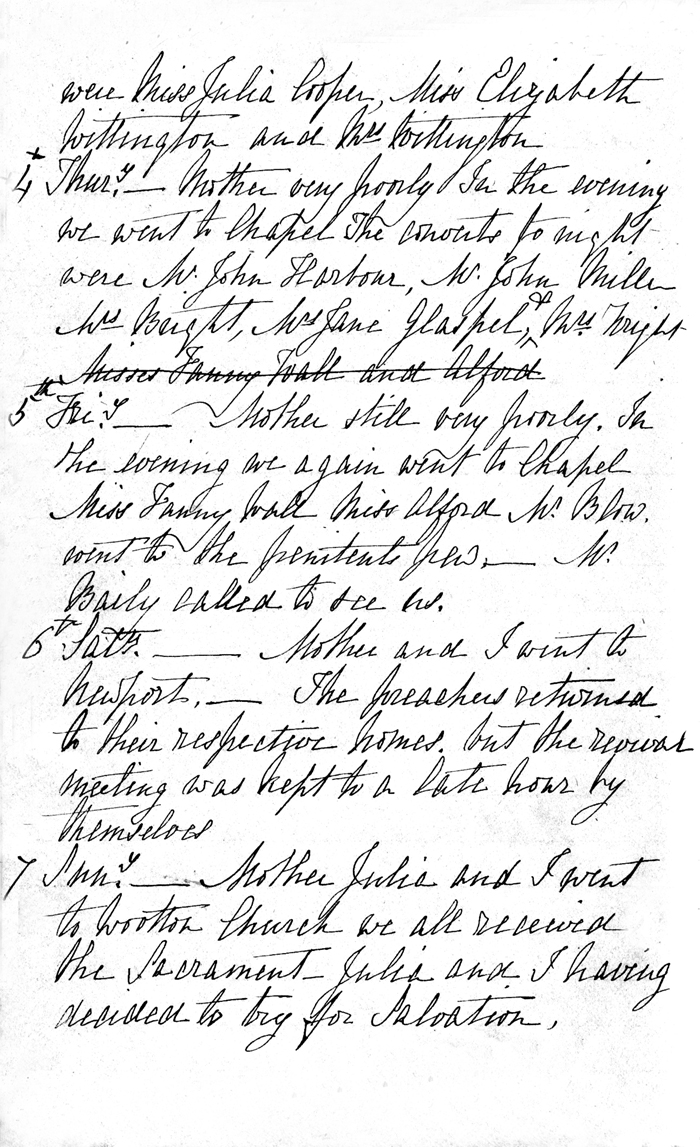 were Miss Julia Cooper, Miss Elizabeth
Wittington and Mrs Wittington
4 Thury. — Mother very poorly In the evening
we went to Chapel The converts to night
were Mr. John Harbour, Mr. John Miller
Mrs Bright, Mrs Jane Glaspel, & Mrs Wright
Misses Fanny Wall and Alford
5th Friy. — Mother still very poorly. In
the evening we again went to Chapel
Miss Fanny Wall Miss Alford Mr. Blow.
went to the penitents pew. — Mr.
Baily called to see us.
6th Saty. — Mother and I went to
Newport. — The preachers returned
to their respective homes. but the revival
meeting was kept to a late hour by
themselves
7 Suny. — Mother Julia and I went
to Wootton Church we all received
the Sacrament – Julia and I having
decided to try for Salvation.